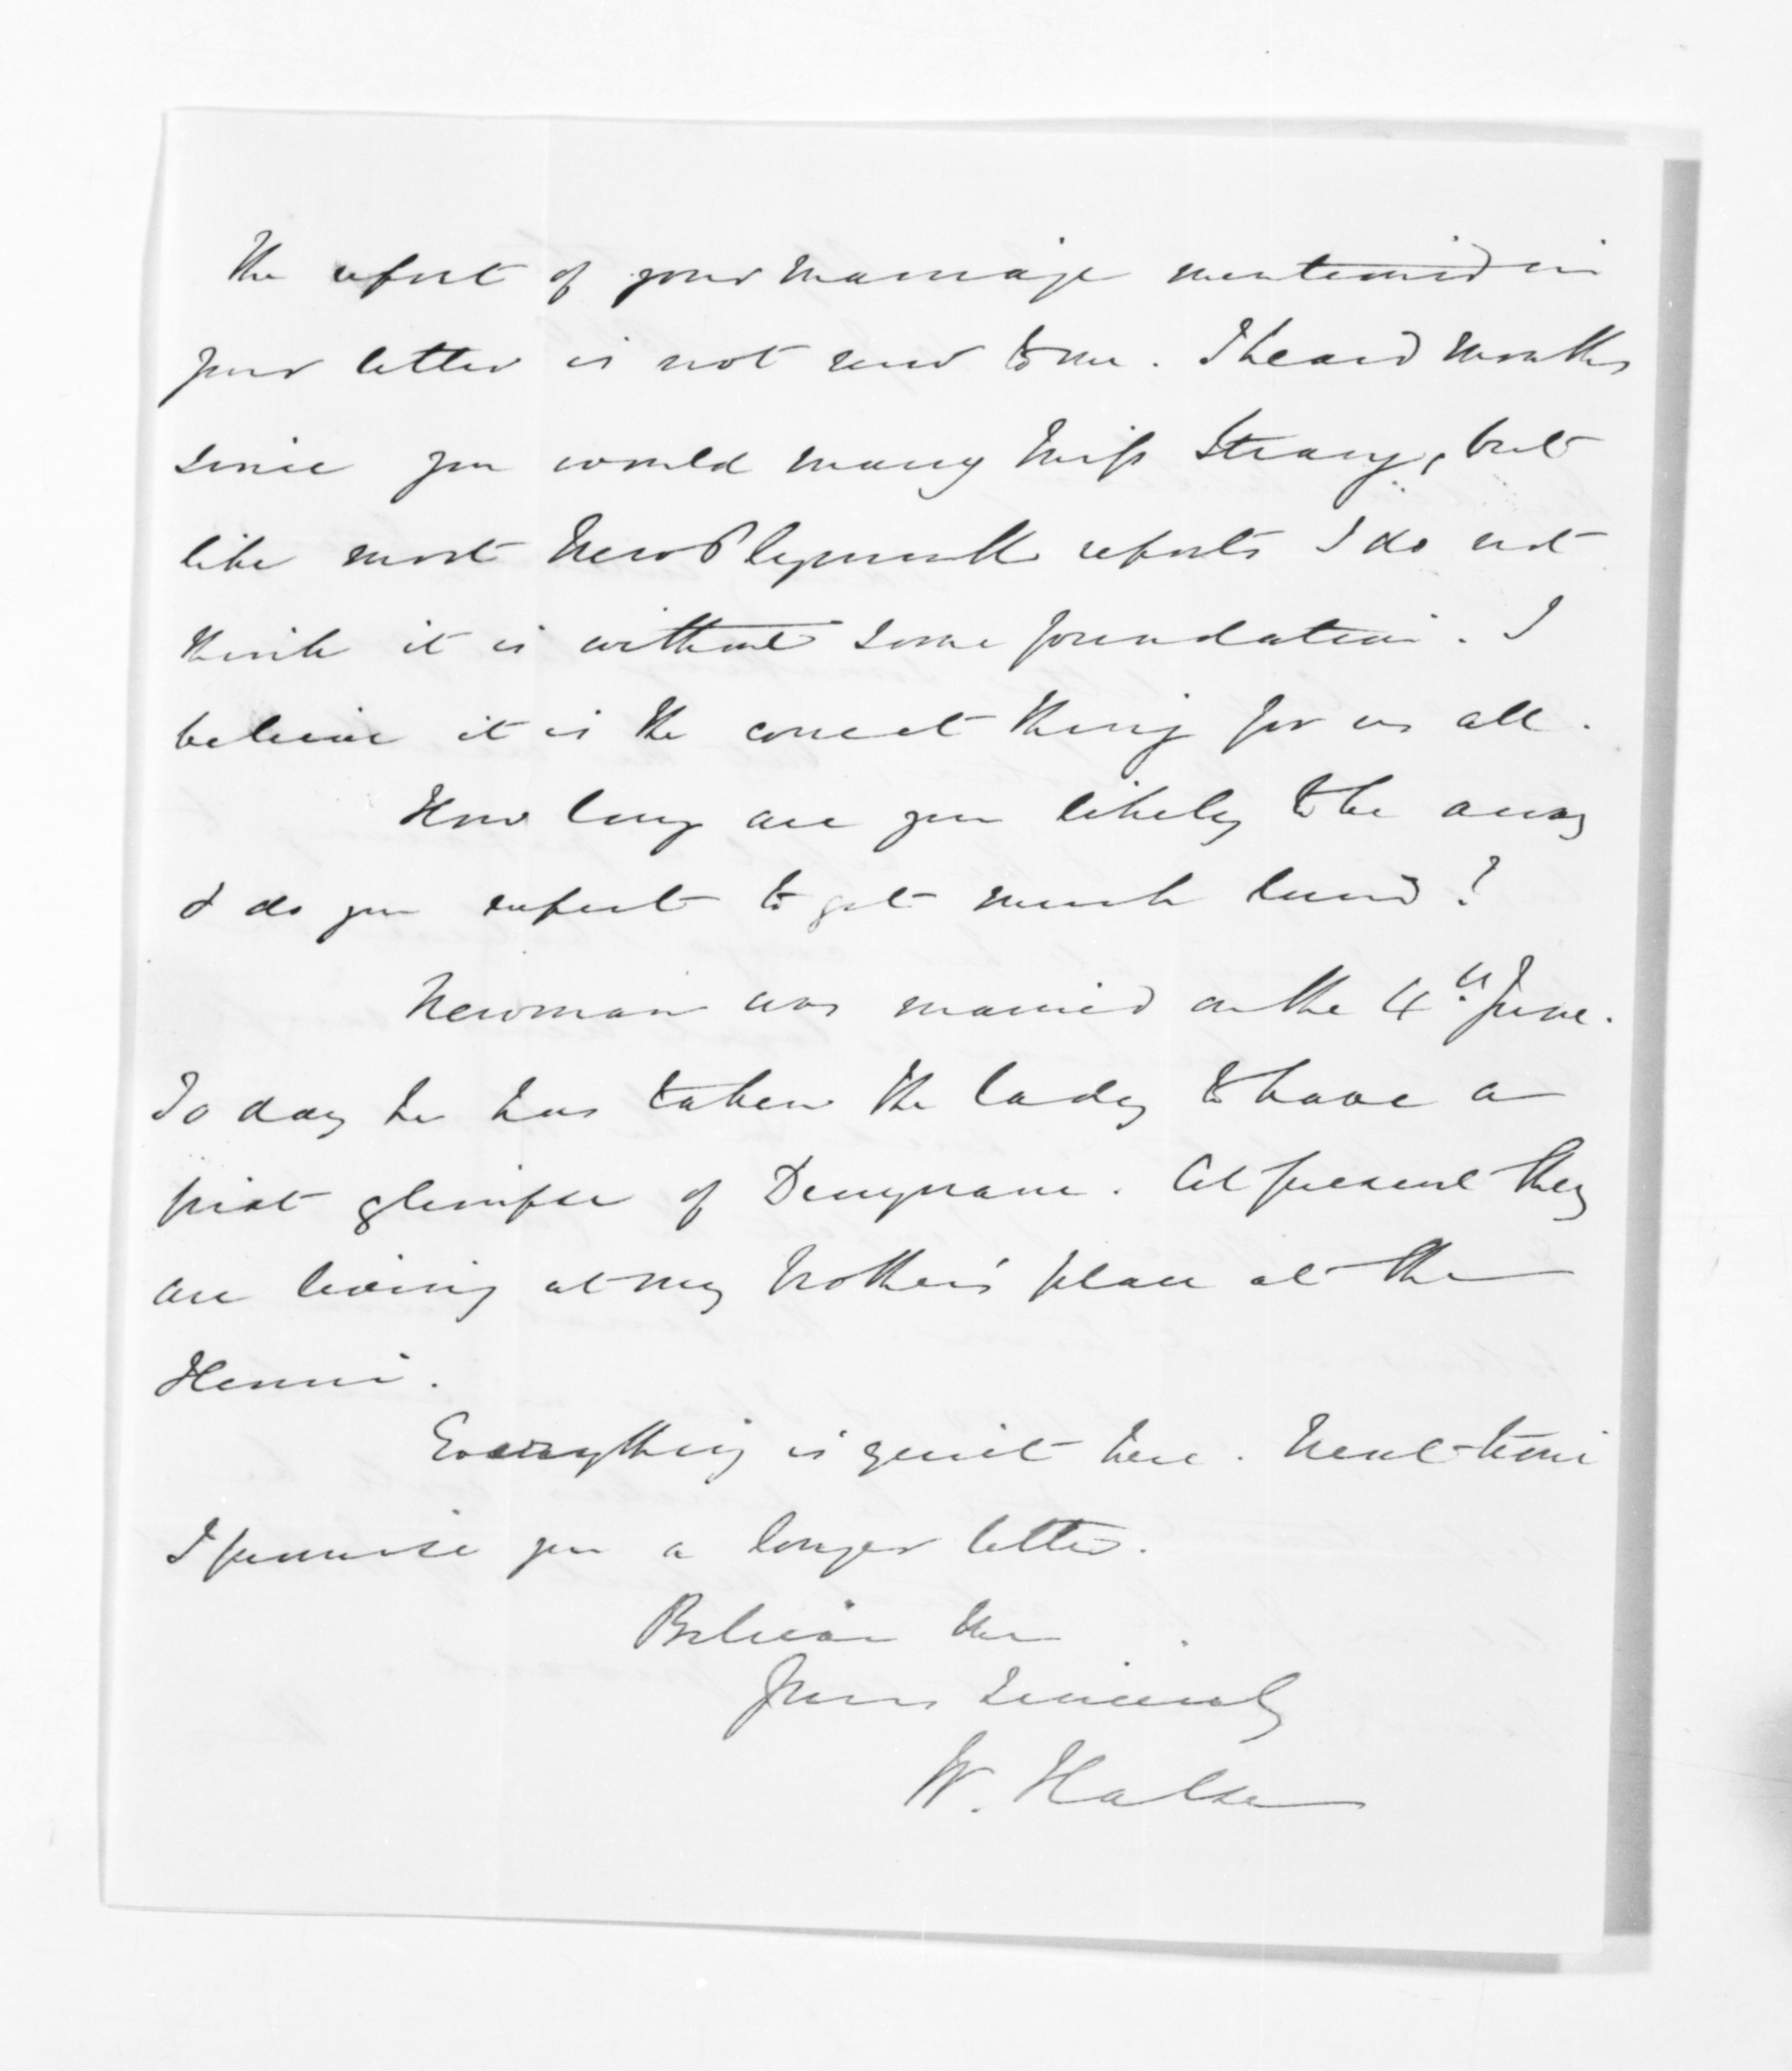 The report of your marriage mentioned in
your letter is not new to me. I heard months
since you would marry Miss Strang, but
like most New Plymouth reports I do not
think it is without some foundation. I
believe it is the correct thing for us all.
How long are you likely to be away
& do you expect to get much land?
Newman was married on the 4th June.
To day he has taken the lady to have a
first glimpse of . At present they
are living at my brother's place at the
Henui.
Everything is quiet here. Next time
I promise you a longer letter.
Believe me
Yours sincerely
W. Halse